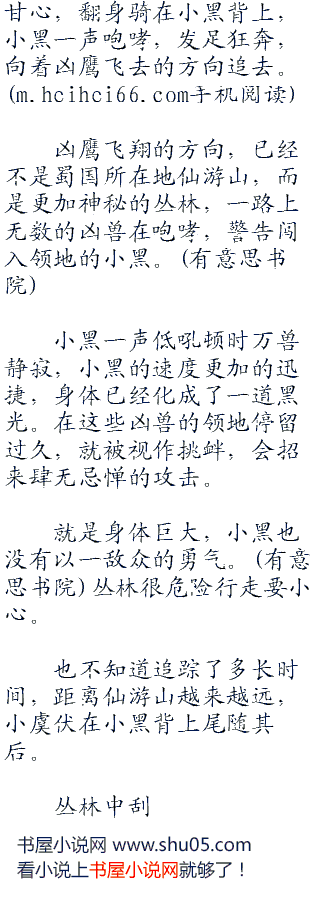 甘心，翻身骑在小黑背上，
小黑一声咆哮，发足狂奔，
向着凶鹰飞去的方向追去。
(m.hcihci66.com手机阅读)
凶鹰飞翔的方向，已经
不是蜀国所在地仙游山，而
是更加神秘的丛林，一路上
无数的凶兽在咆哮，警告闯
入领地的小黑。(有意思书
院)
小黑一声低吼顿时万兽
静寂，小黑的速度更加的迅
捷，身体已经化成了一道黑
光。在这些凶兽的领地停留
过久，就被视作挑衅，会招
来肆无忌惮的攻击。
就是身体巨大，小黑也
没有以一敌众的勇气。(有意
思书院)丛林很危险行走要小
心。
也不知道追踪了多长时
间，距离仙游山越来越远，
小虞伏在小黑背上尾随其
后。
丛林中刮
书屋小说网 www.shu05.com
看小说上书屋小说网就够了！